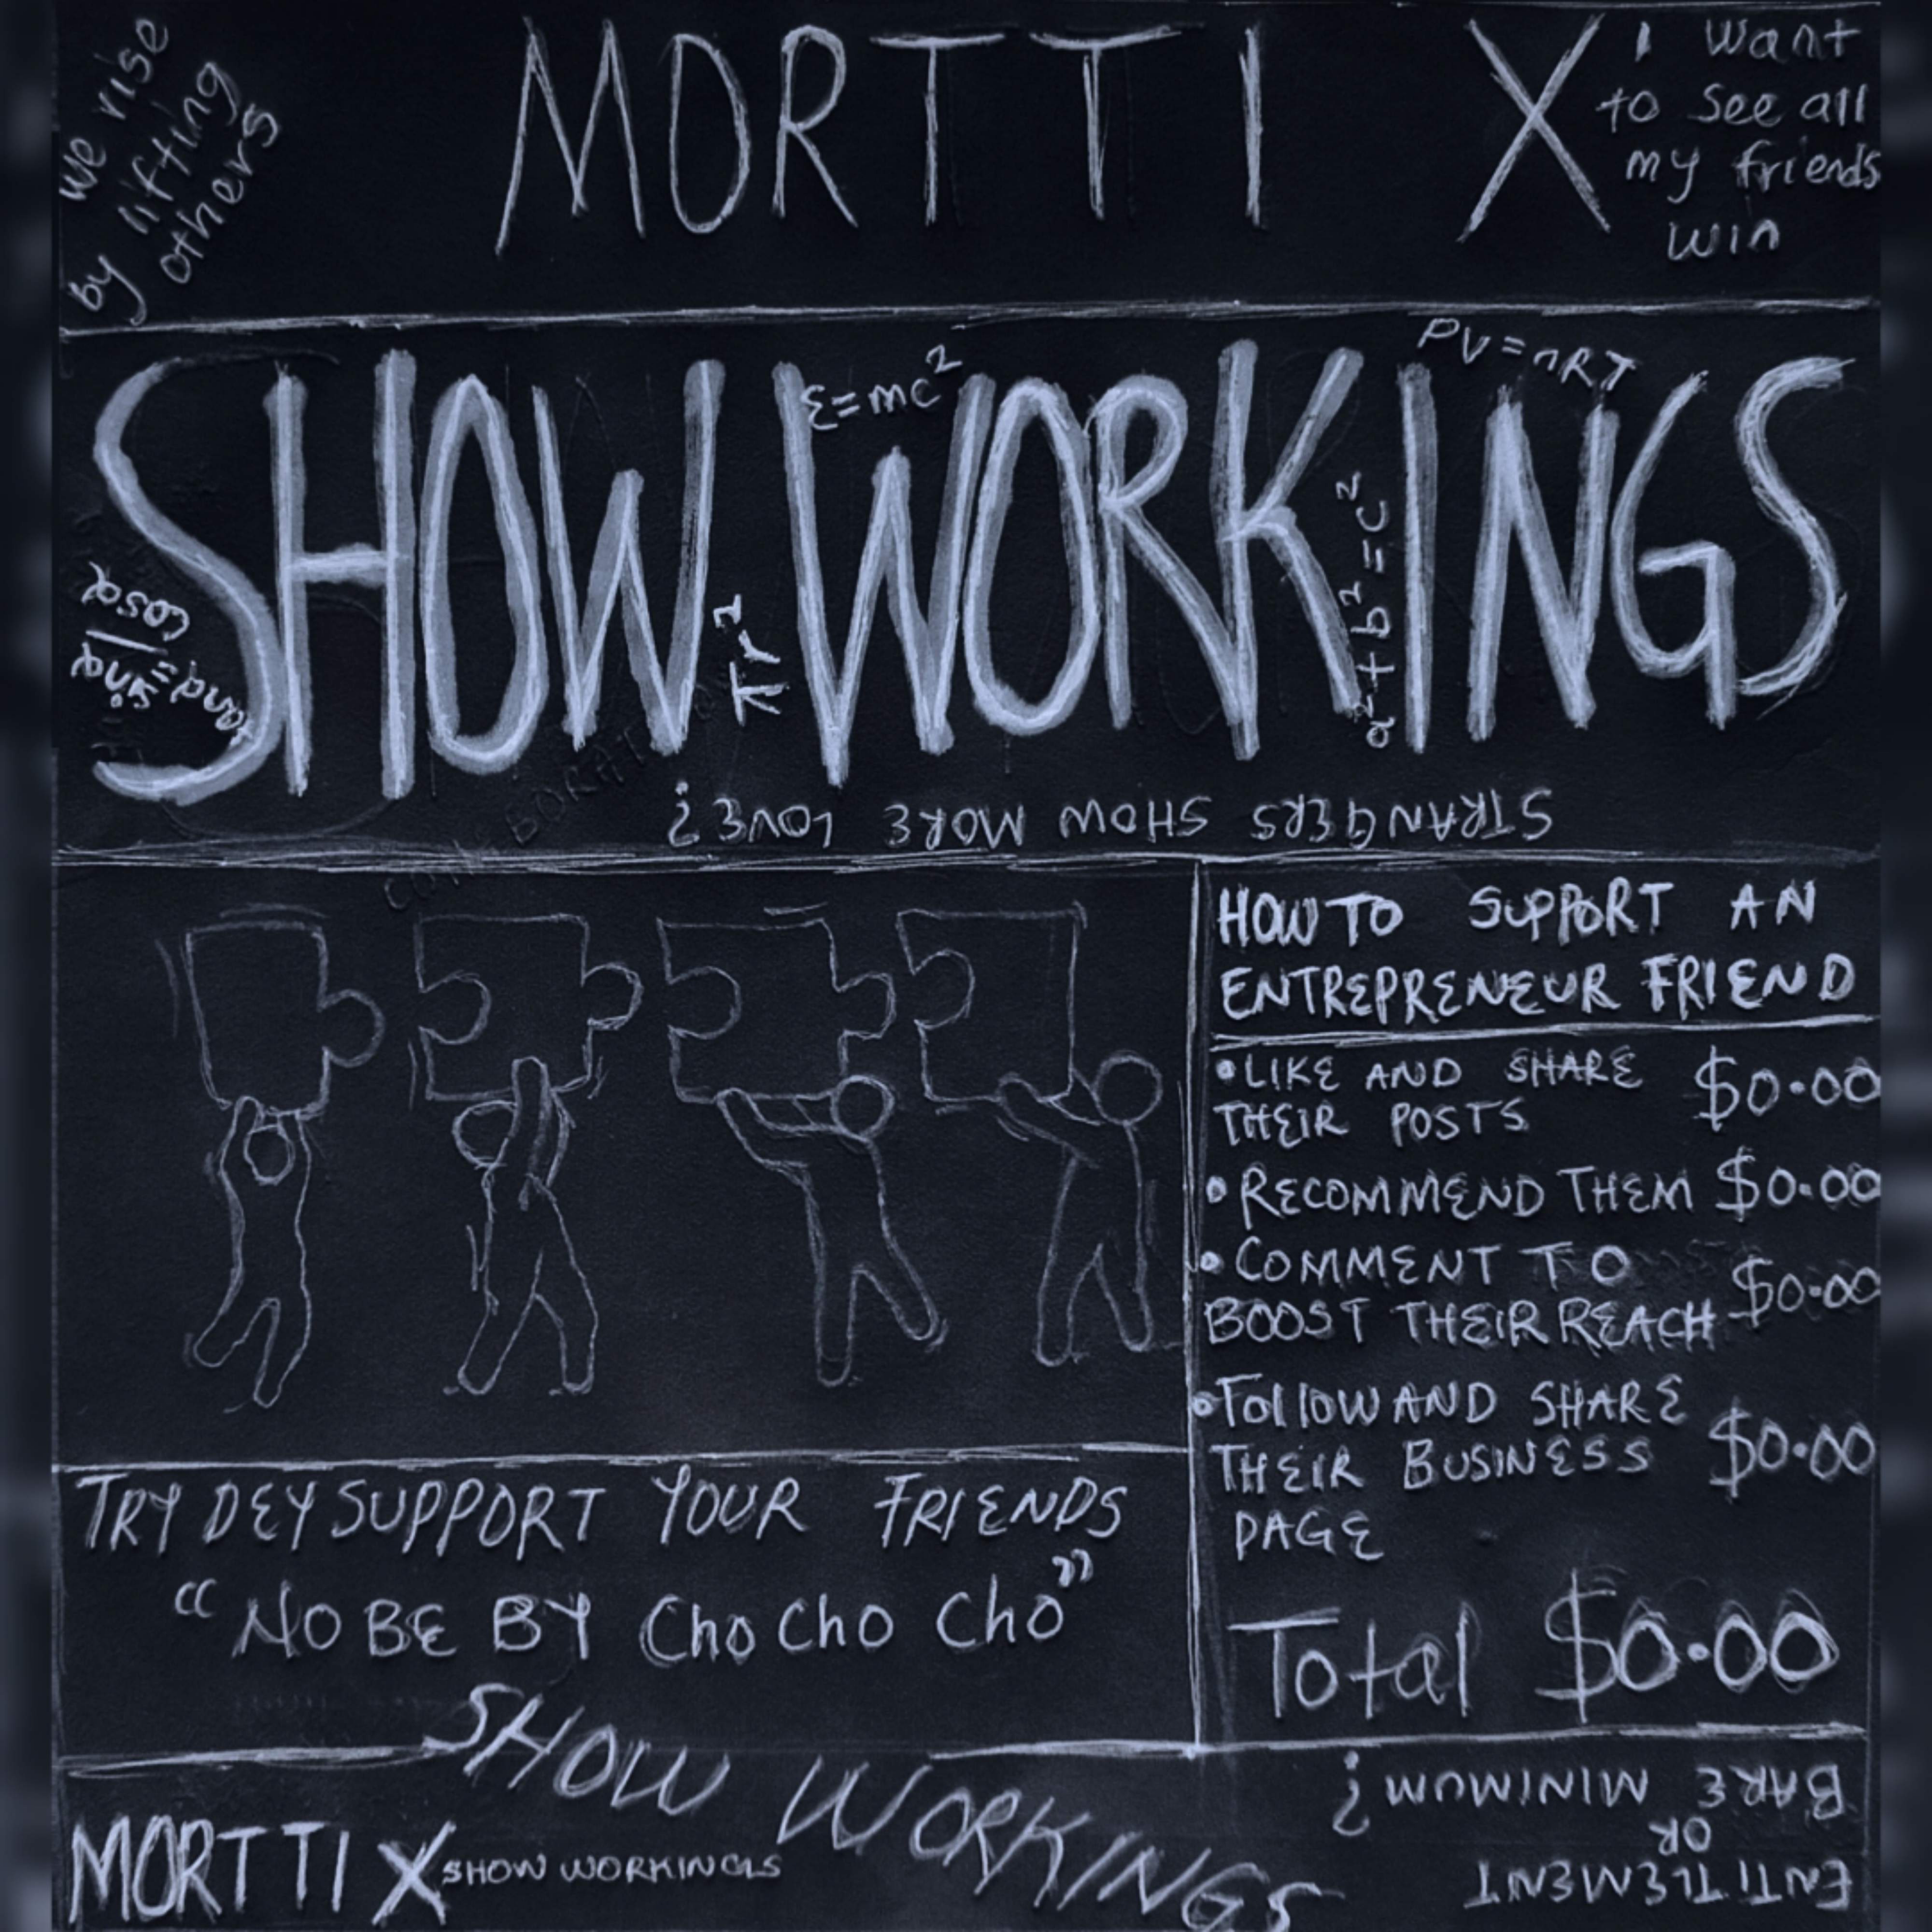 we rise
by lifting
others
MORTTI X
I want
to see all
my friends
win
SHOW WORKINGS
E=mc²
PV=nRT
tanα=sinα/cosα
πr²
a²+b²=c²
STRANGERS SHOW MORE LOVE?
COLLABORATION
HOW TO SUPPORT AN
ENTREPRENEUR FRIEND
•LIKE AND SHARE
THEIR POSTS $0.00
•RECOMMEND THEM $0.00
•COMMENT TO
BOOST THEIR REACH $0.00
•Follow AND SHARE
THEIR BUSINESS $0.00
PAGE
Total $0.00
TRY DEY SUPPORT YOUR FRIENDS
“NO BE BY Cho Cho Cho”
SHOW WORKINGS
MORTTI X SHOW WORKINGS
ENTITLEMENT
OR
BARE MINIMUM?